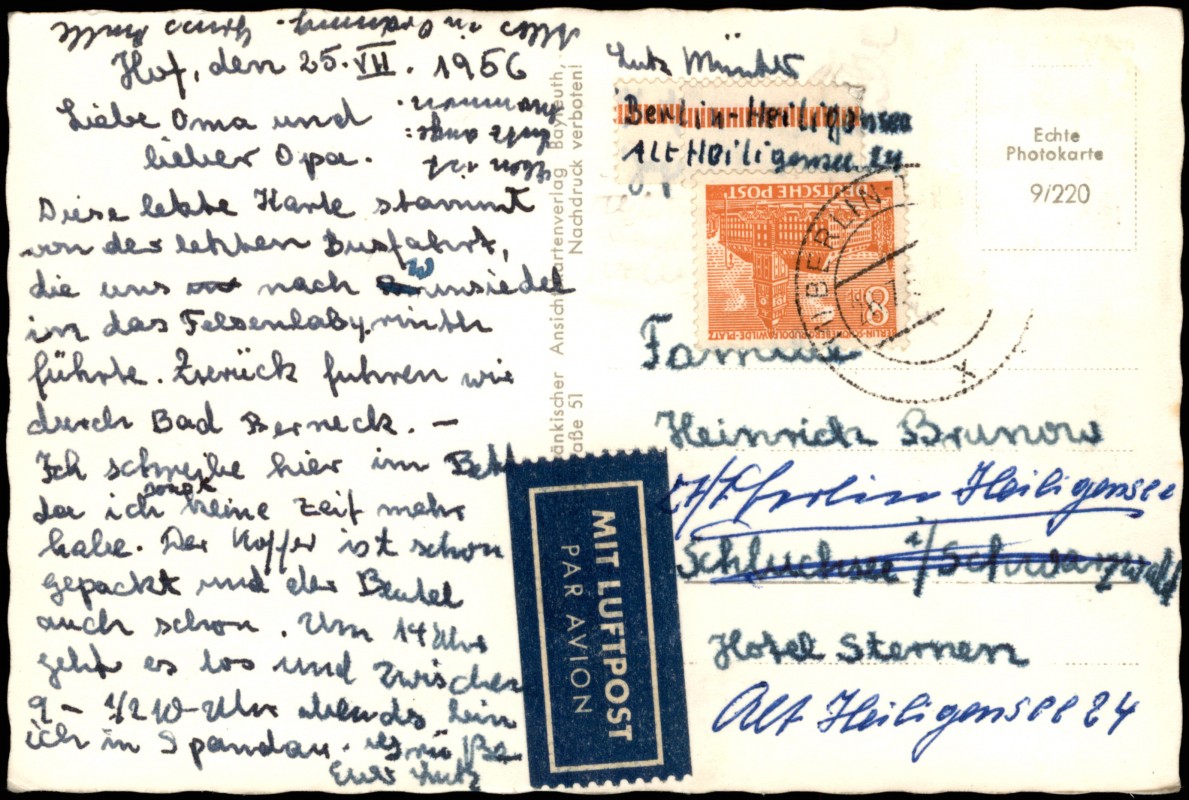 Alles in Ordnung. Gruss
Hof, den 25. VII. 1956
Liebe Oma und
lieber Opa.
Diese letzte Karte stammt
von der letzten Busfahrt,
die uns nach Wunsiedel
in das Felsenlabyrinth
führte. Zurück fuhren wir
durch Bad Berneck. –
Ich schreibe hier im Bett
da ich sonst keine Zeit mehr
habe. Der Koffer ist schon
gepackt und der Beutel
auch schon. Um 14 Uhr
geht es los und zwischen
9 – 1/2 10-Uhr abends bin
ich in Spandau. Es grüßt
Euer Lutz
änkischer Ansichtskartenverlag Bayreuth,
aße 51 Nachdruck verboten!
Lutz
Berlin-Heiligensee
Alt Heiligensee 24
DEUTSCHE POST
8
BERLIN
X
Echte
Photokarte
9/220
Familie
Heinrich Brunow
Berlin Heiligensee
Schluchsee i/Schwarzwald
Hotel Sternen
Alt Heiligensee 24
MIT LUFTPOST
PAR AVION